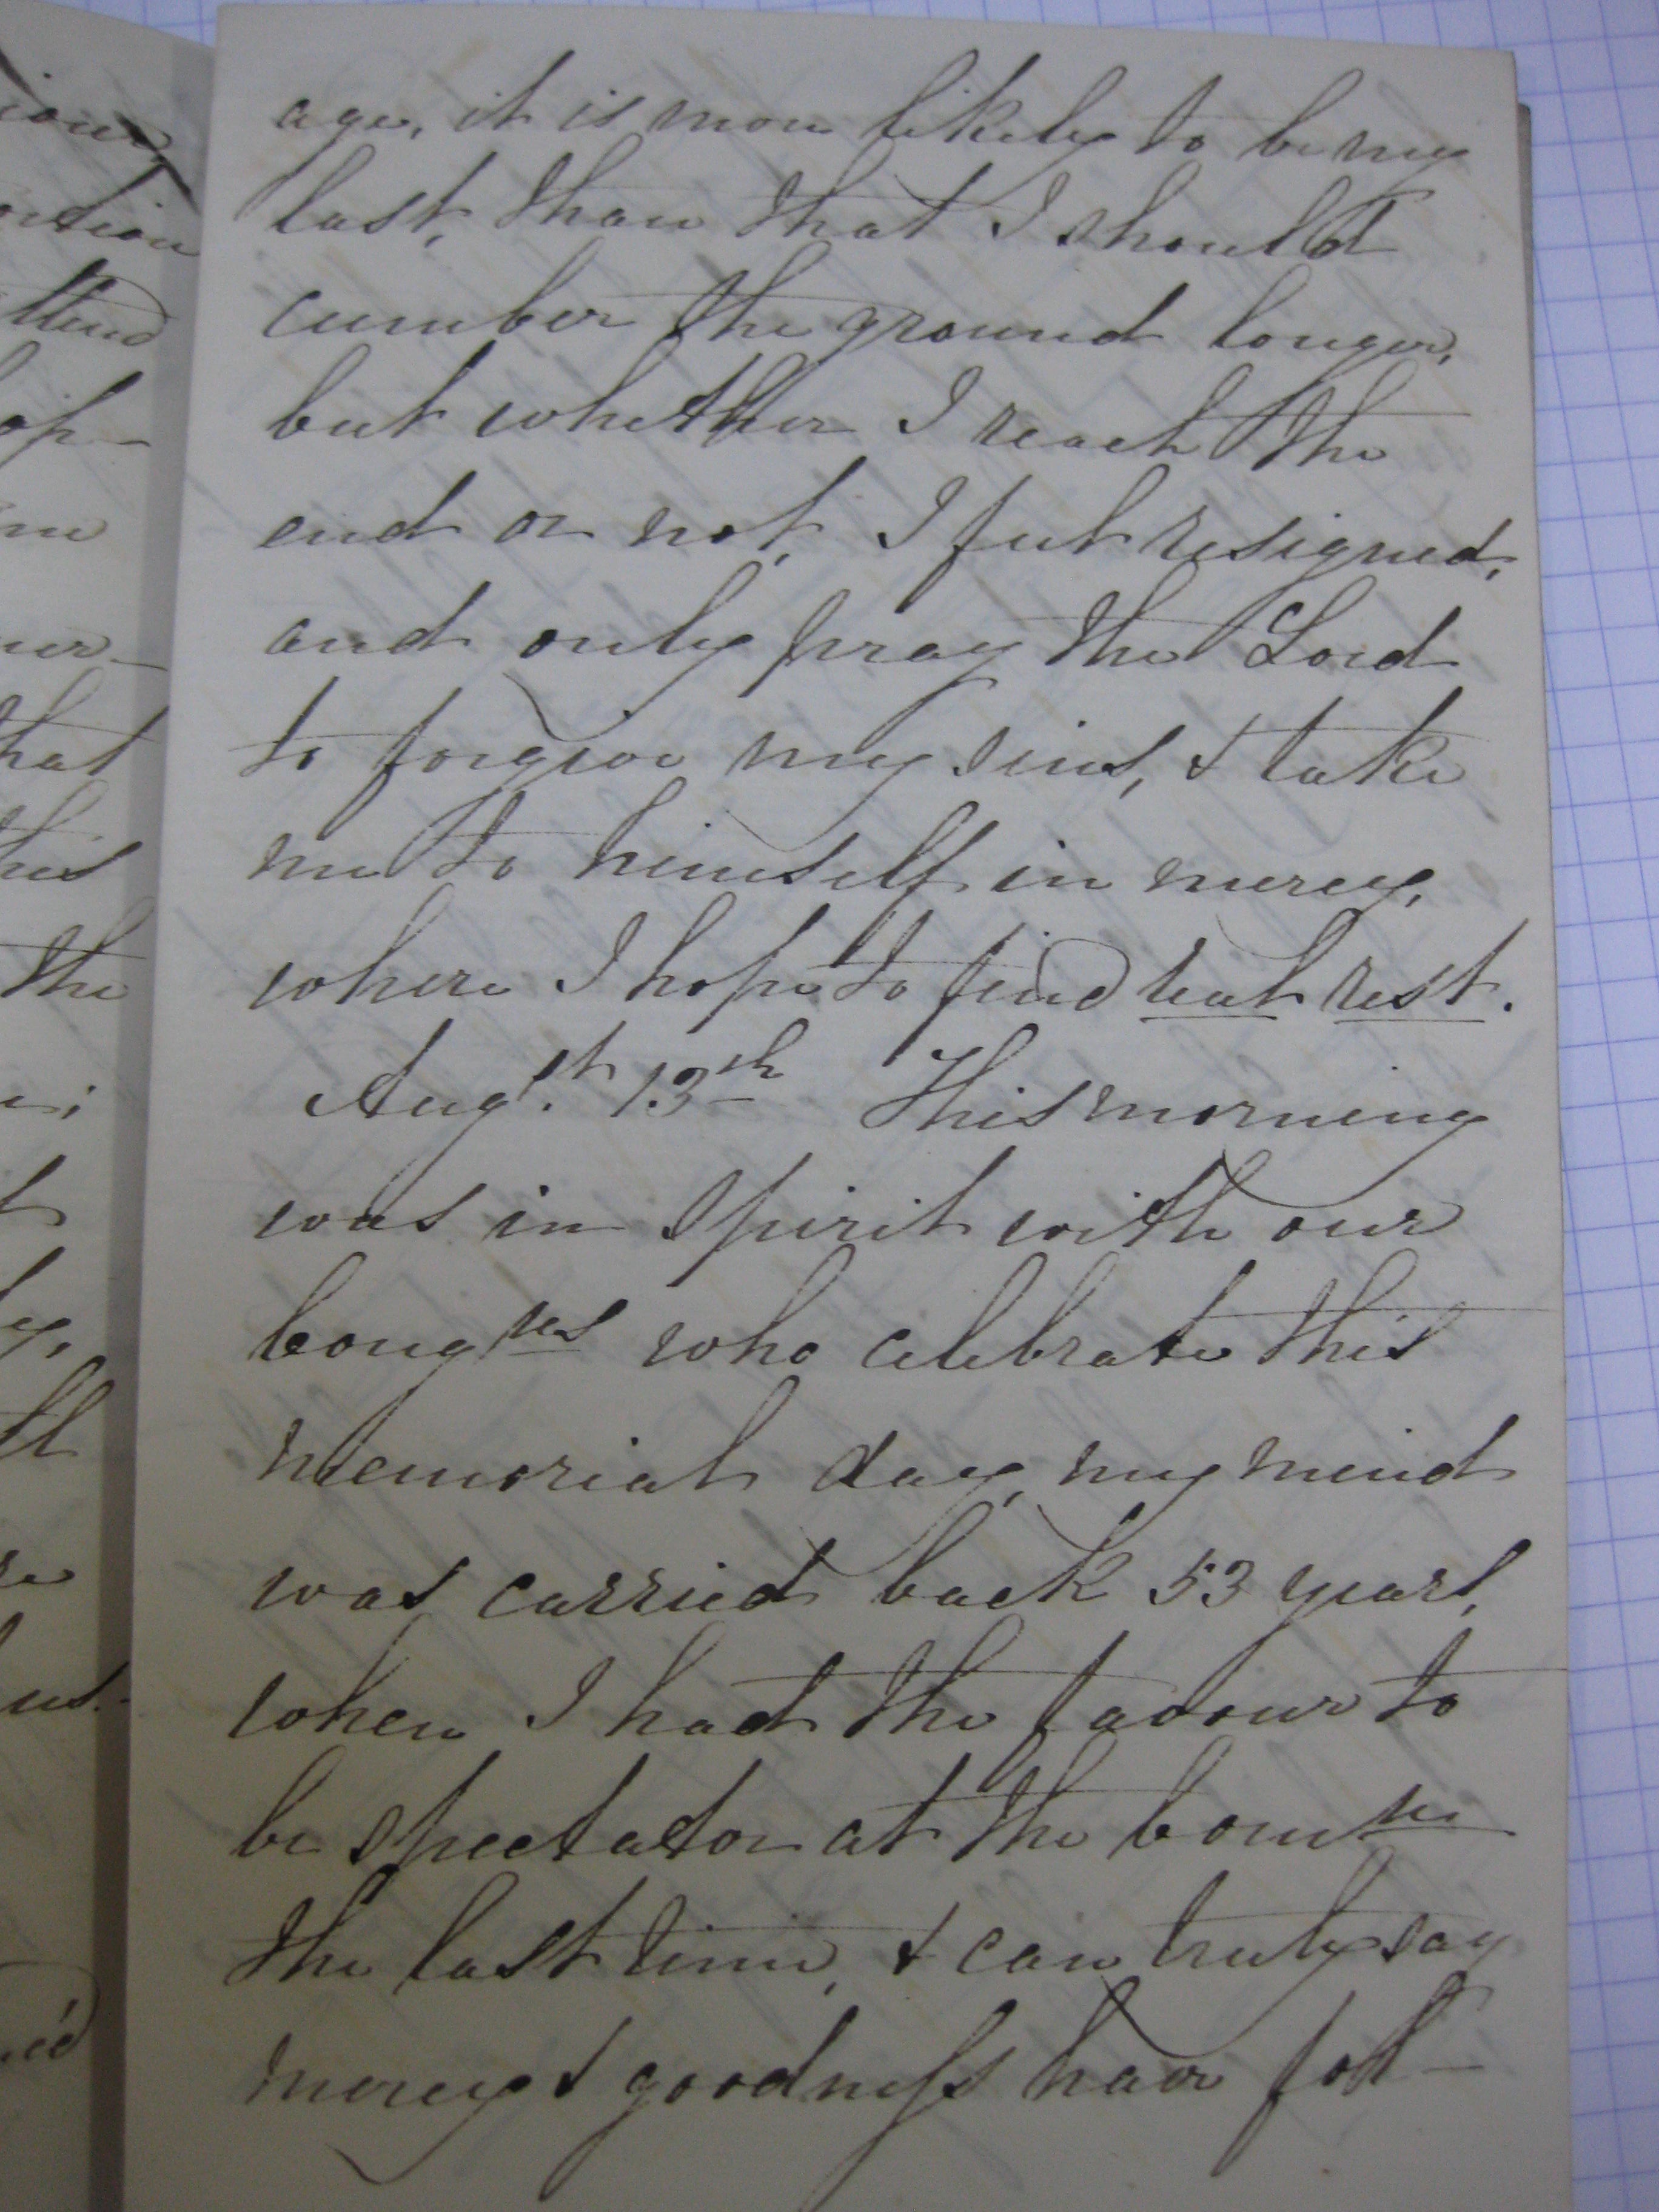 age, it is more likely to be my
last, than that I should
cumber the ground longer,
but whether I reach the
end or not, I felt resigned,
and only pray the Lord
to forgive my sins, & take
me to himself in mercy,
where I hope to find real rest.
Aug.st 13th This morning
was in spirit with our
Congns who celebrate this
memorial day, my mind
was carried back 53 years,
when I had the favour to
be spectator at the Commn
the last time, & can truly say
mercy & goodness have fol-